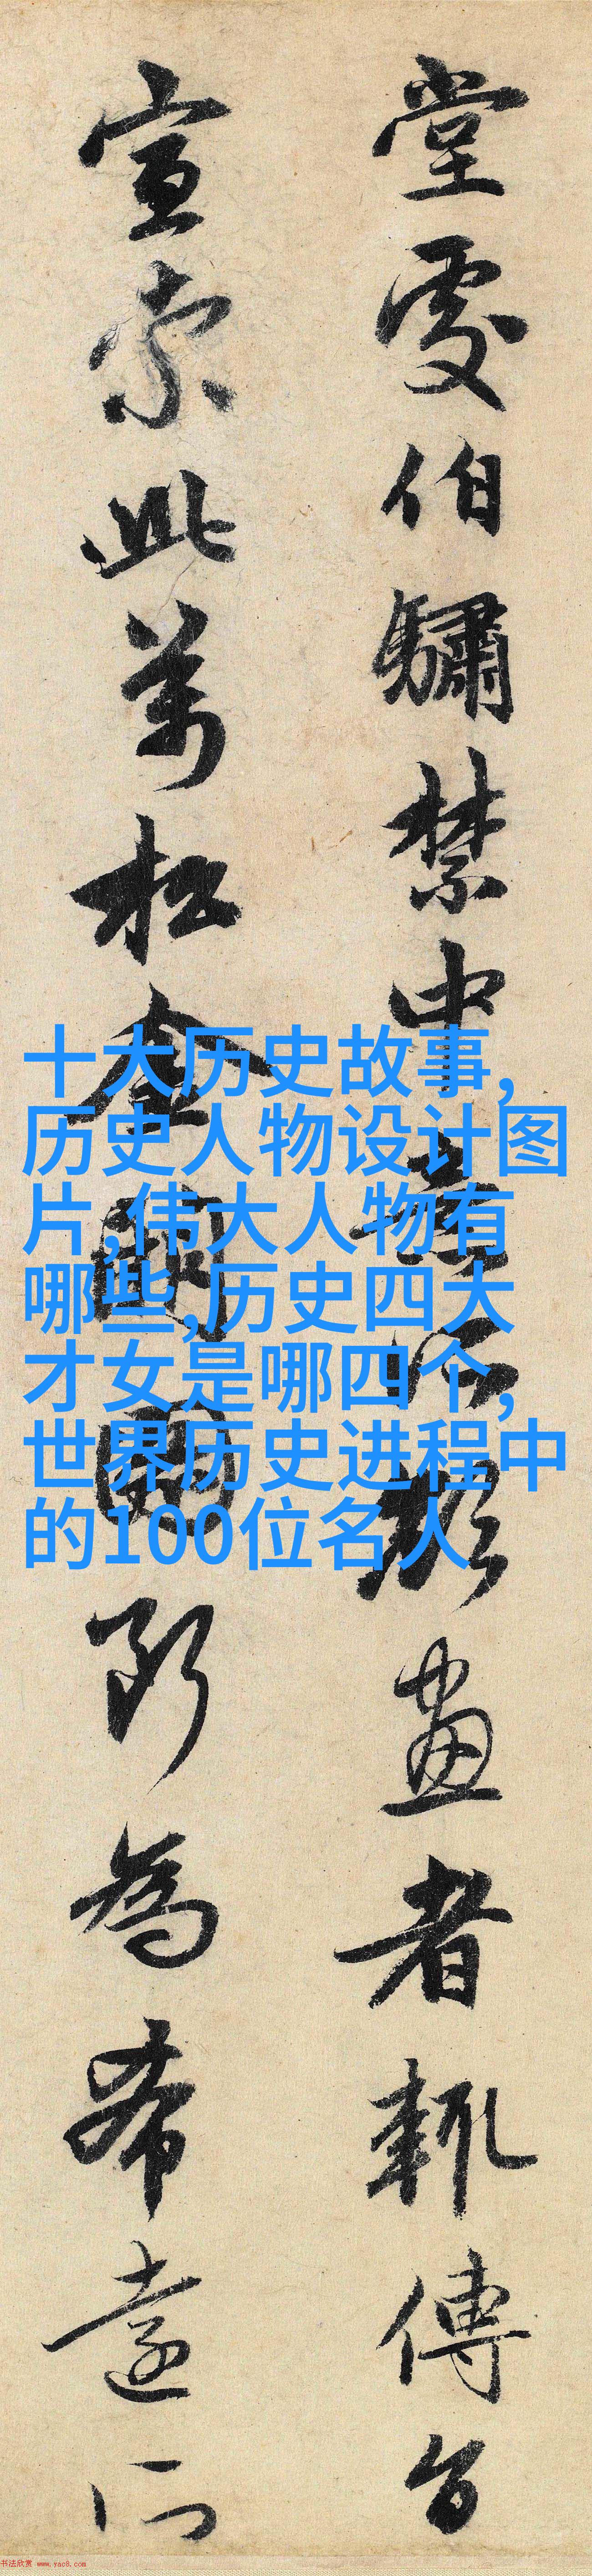 堂處伯驌禁中意所欲畫者輒傳旨
宣索此萬松金闕圖斷為希遠所
十大历史故事,
历史人物设计图
片,伟大人物有
哪些,历史四大
才女是哪四个,
世界历史进程中
的100位名人
书法欣赏 www.yac8.com